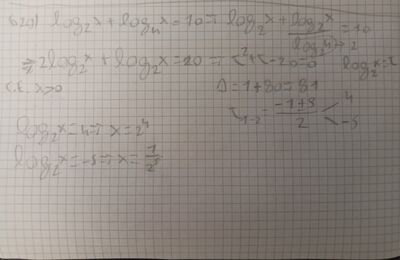 620) log₂²x + log₄x = 10 ⇒ log₂²x + log₂x / log₂4 → 2 = 10
⇒ 2log₂²x + log₂x = 20 ⇒ t² + t - 20 = 0 log₂x = t
C.E. x>0 Δ = 1 + 80 = 81
t₁₋₂ = (-1 ± 9) / 2 < 4, -5
log₂x = 4 ⇒ x = 2⁴
log₂x = -5 ⇒ x = 1/2⁵